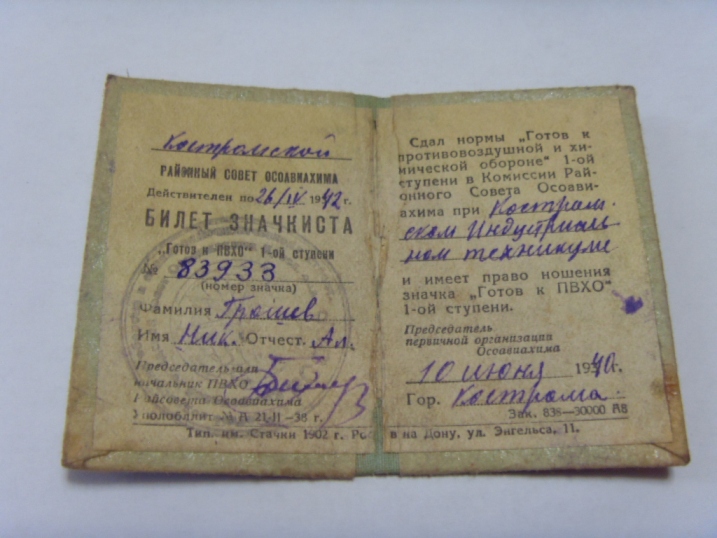 Костромской
РАЙОННЫЙ СОВЕТ ОСОАВИАХИМА
Действителен по 26/IV 1942 г.
БИЛЕТ ЗНАЧКИСТА
„Готов к ПВХО" 1-ой ступени
№ 83933
(номер значка)
Фамилия Грошев
Имя Ник. Отчест. Ал.
Председатель или
начальник ПВХО
Райсовета Осоавиахима
Уполобллит № А 21-II—38 г.
Тип. им. Стачки 1902 г. Рос в на Дону, ул. Энгельса, 11.
Сдал нормы „Готов к
противовоздушной и хи-
мической обороне" 1-ой
ступени в Комиссии Рай-
онного Совета Осоави-
ахима при Костром-
ском Индустриаль
ном техникуме
и имеет право ношения
значка „Готов к ПВХО"
1-ой ступени.
Председатель
первичной организации
Осоавиахима
10 июня 1940 г.
Гор. Кострома
Зак. 838—30000 АВ